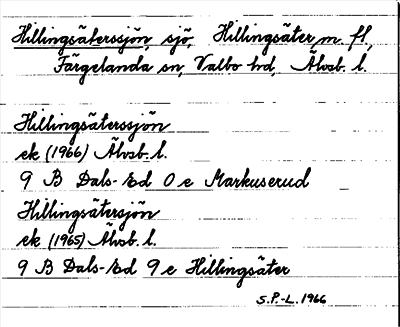 Hillingsäterssjön, sjö, Hillingsäter, m. fl,
Färgelanda sn, Valbo hd, Älvsb. l.
Hillingsäterssjön
ek (1966) Älvsb. l.
9 B Dals-Ed 0 e Markuserud
Hillingsätersjön
ek (1965) Älvsb. l.
9 B Dals-Ed 9 e Hillingsäter
S.P.-L. 1966